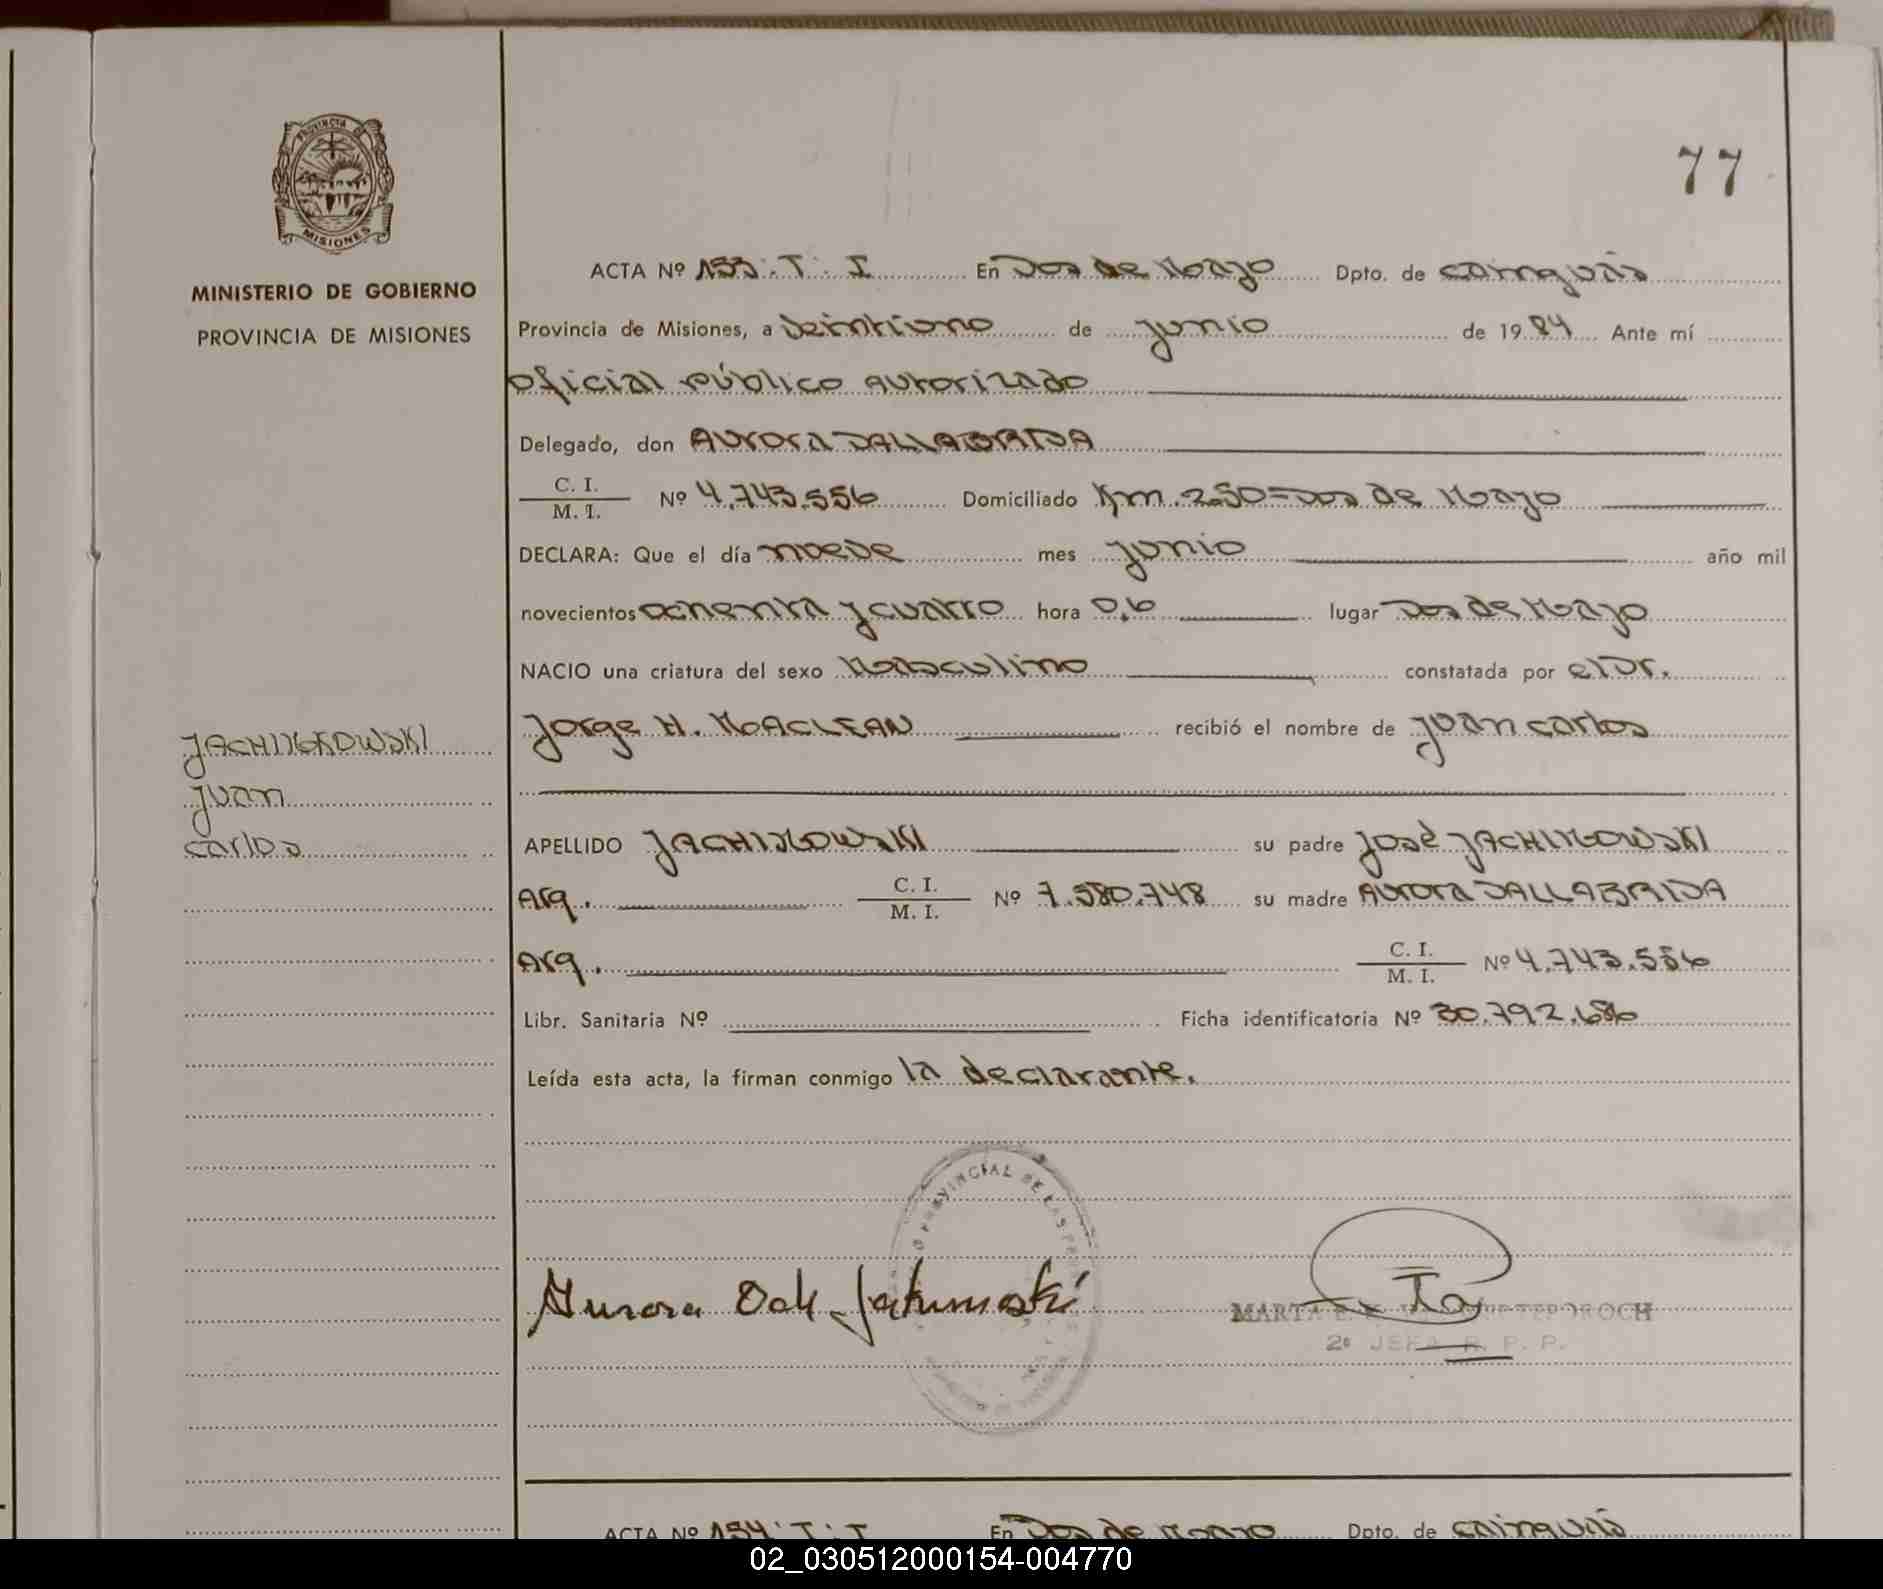 77
PROVINCIA DE
MISIONES
MINISTERIO DE GOBIERNO
PROVINCIA DE MISIONES
ACTA Nº 153. T. I En Dos de Mayo Dpto. de Cainguás
Provincia de Misiones, a veintiuno de junio de 1984 Ante mí
oficial público autorizado
Delegado, don Aurora DALLABRIDA
C. I. / M. I. Nº 4.743.556 Domiciliado Km. 250=Dos de Mayo
DECLARA: Que el día nueve mes junio año mil
novecientos ochenta y cuatro hora 0,6 lugar Dos de Mayo
NACIO una criatura del sexo Masculino constatada por el Dr.
Jorge H. MACLEAN recibió el nombre de Juan Carlos
JACHIMKOWSKI
Juan
Carlos
APELLIDO JACHIMOWSKI su padre José JACHIMOWSKI
Arg. C. I. / M. I. Nº 7.580.748 su madre Aurora DALLABRIDA
Arg. C. I. / M. I. Nº 4.743.556
Libr. Sanitaria Nº Ficha identificatoria Nº 30.792.686
Leída esta acta, la firman conmigo la declarante.
PROVINCIAL DE LAS
Aurora Dall
MARTA
2º JEFA R. P. P.
ACTA Nº 154. T. I En Dos de Mayo Dpto. de Cainguás
02_030512000154-004770